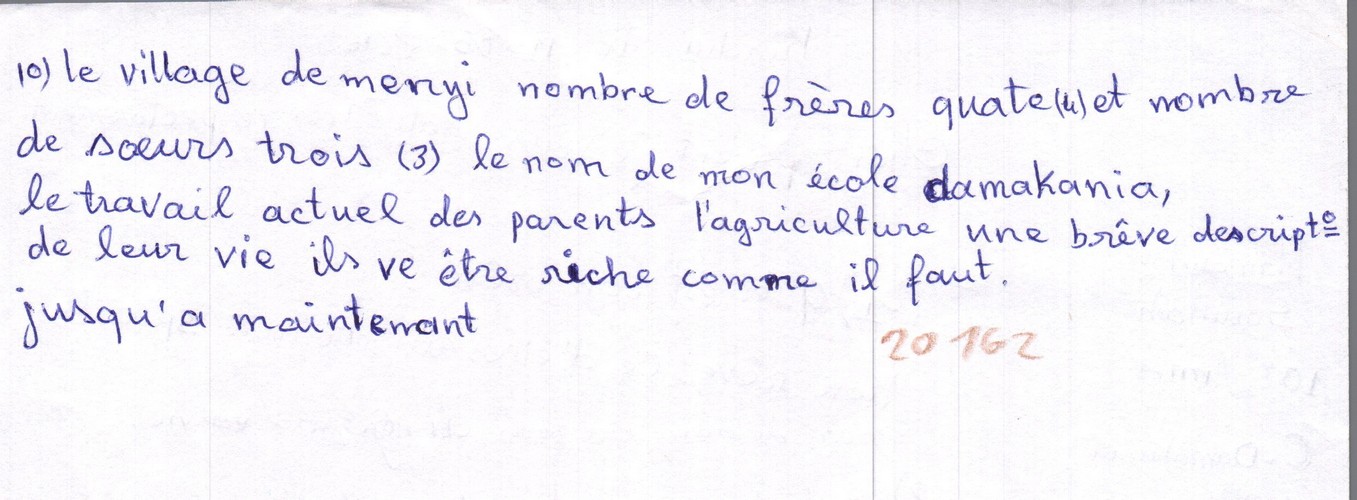 10) le village de menyi nombre de frères quate (4) et nombre
de sœurs trois (3) le nom de mon école damakania,
le travail actuel des parents l'agriculture une brêve descript°
de leur vie ils ve être riche comme il faut.
jusqu'a maintenant
20162